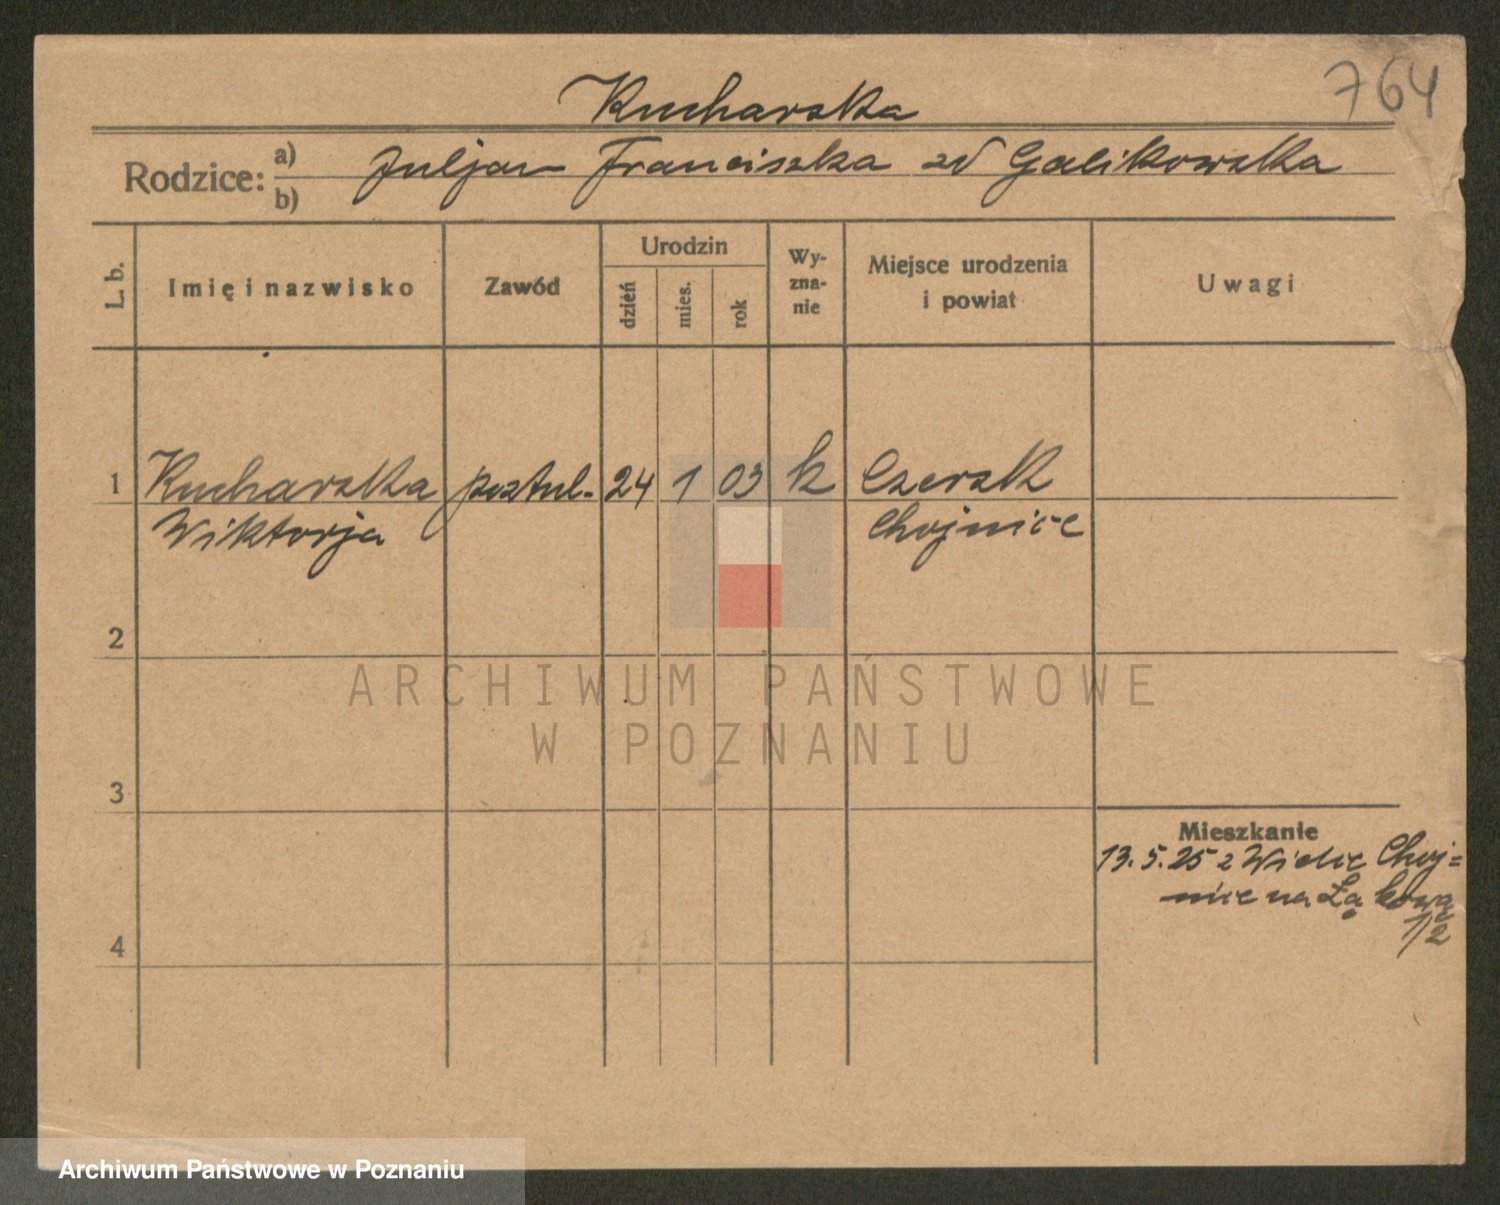 764
Kucharska
Rodzice: a) b) Juljan Franciszka zd Galikowska
L. b.
Imię i nazwisko
Zawód
Urodzin
dzień
mies.
rok
Wy-
zna-
nie
Miejsce urodzenia
i powiat
Uwagi
1 Kucharska postul- 24 1 03 k Czersk
Wiktorja Chojnice
2
3
4
Mieszkanie
13.5.25 z Wiele Choj=
nice na Łąkową
1/2
ARCHIWUM PAŃSTWOWE
W POZNANIU
Archiwum Państwowe w Poznaniu